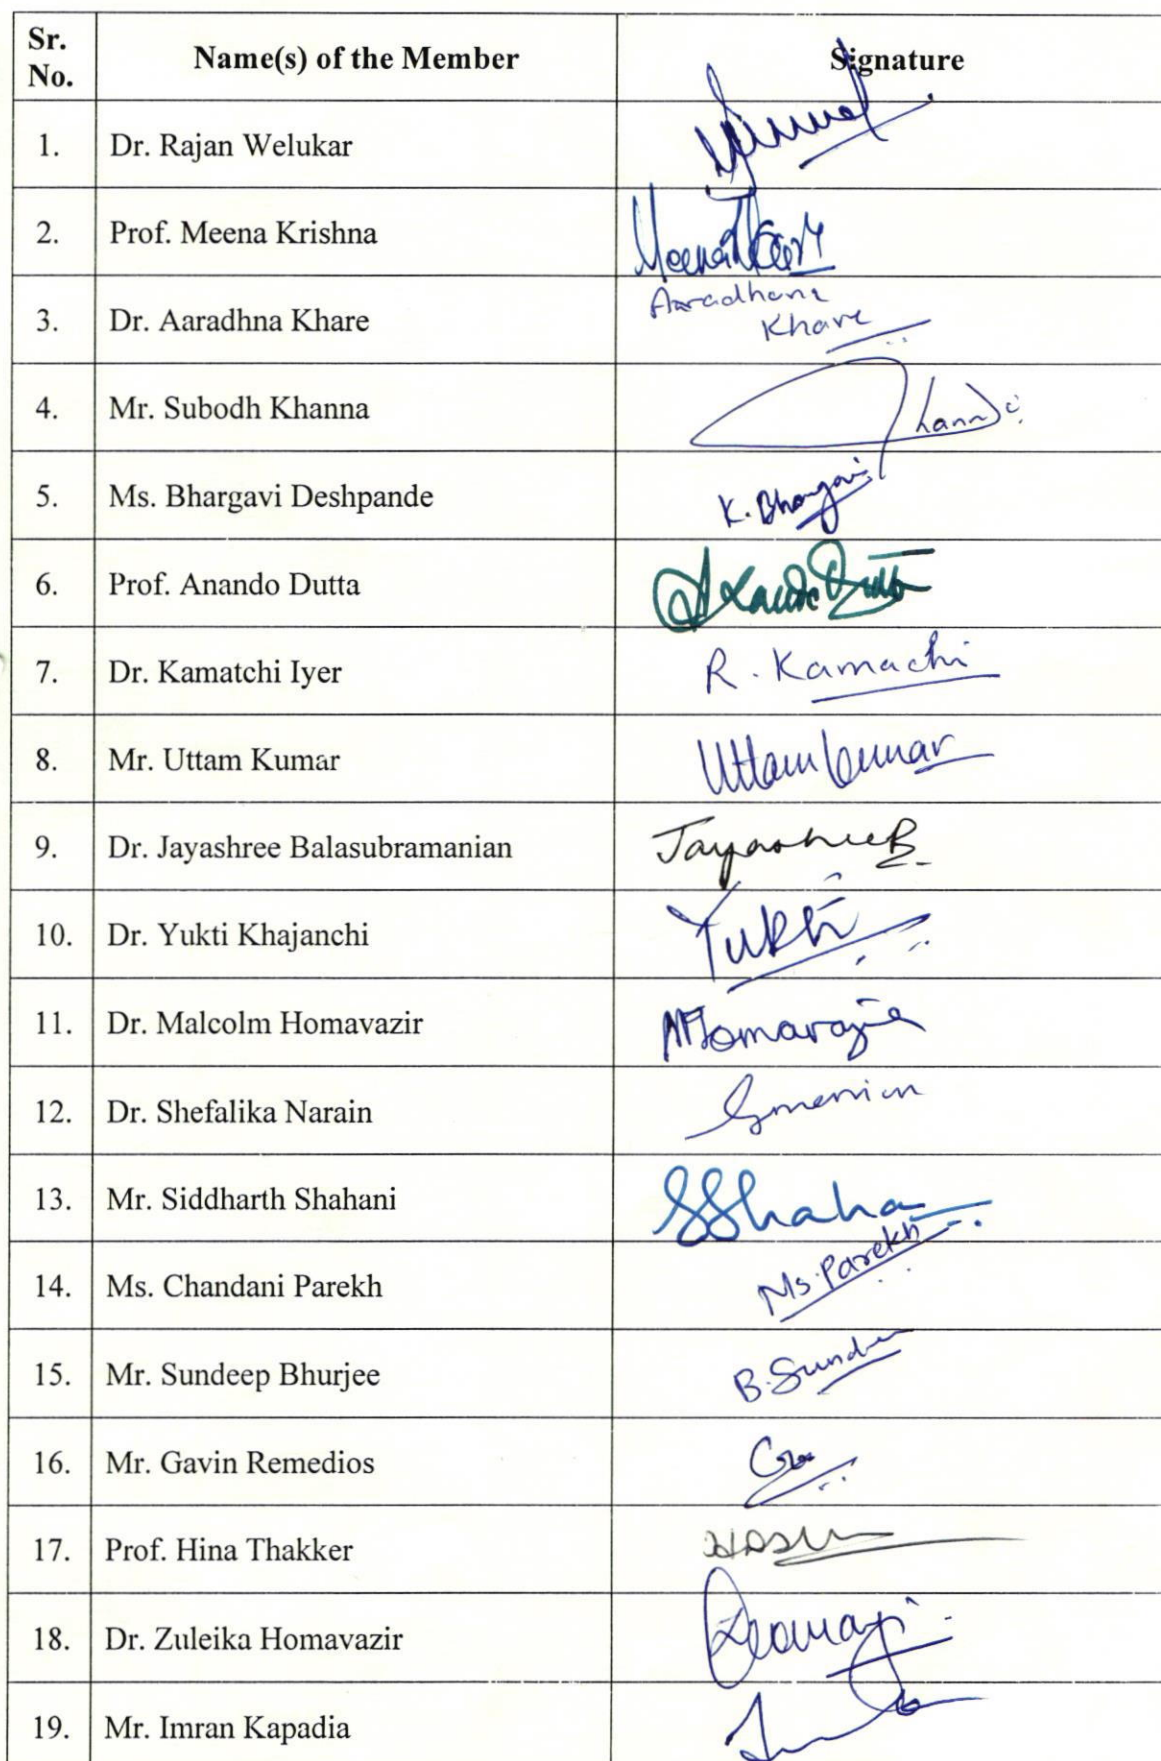 Sr. No. Name(s) of the Member Signature
1. Dr. Rajan Welukar
2. Prof. Meena Krishna Meena
3. Dr. Aaradhna Khare Aaradhana Khare
4. Mr. Subodh Khanna
5. Ms. Bhargavi Deshpande K. Bhargavi
6. Prof. Anando Dutta
7. Dr. Kamatchi Iyer R. Kamachi
8. Mr. Uttam Kumar Uttam Kumar
9. Dr. Jayashree Balasubramanian Jayashree B
10. Dr. Yukti Khajanchi Yukti
11. Dr. Malcolm Homavazir
12. Dr. Shefalika Narain
13. Mr. Siddharth Shahani SShaha
14. Ms. Chandani Parekh Ms. Parekh
15. Mr. Sundeep Bhurjee
16. Mr. Gavin Remedios
17. Prof. Hina Thakker
18. Dr. Zuleika Homavazir
19. Mr. Imran Kapadia